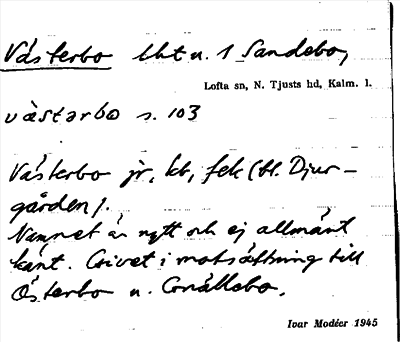 Västerbo lht u. 1 Sandebo,
Lofta sn, N. Tjusts hd, Kalm. l.
västərbo s. 103
Västerbo jr, kb, fek (bl. Djur-
gården).
Namnet är nytt och ej allmänt
känt. Givet i motsättning till
Österbo u. Gnällebo.
Ivar Modéer 1945